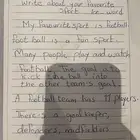 write about your favourite
sport. be word.
My favourite sport is football
Foot ball is a fun sport
Many people play and watch
Football. The goal is
kick the ball into
the other team's goal.
A football team has 11 players.
There's a goalkeeper,
defenders, midfielders